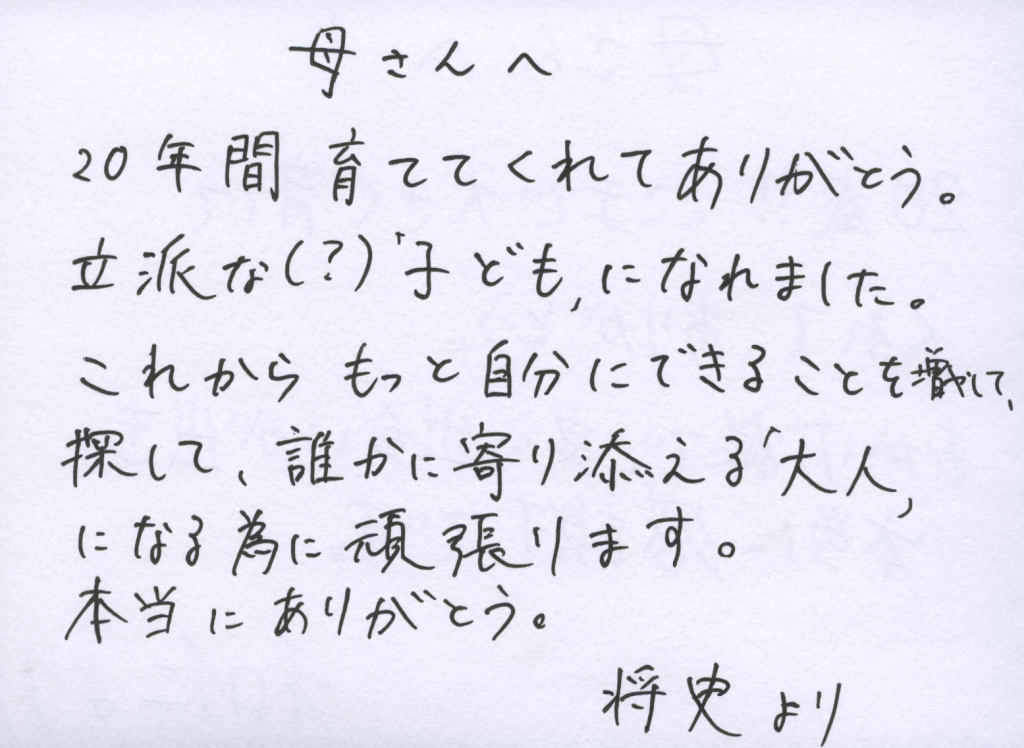 母さんへ
20年間育ててくれてありがとう。
立派な(?)「子ども」になれました。
これからもっと自分にできることを増やして、
探して、誰かに寄り添える「大人」
になる為に頑張ります。
本当にありがとう。
将史より